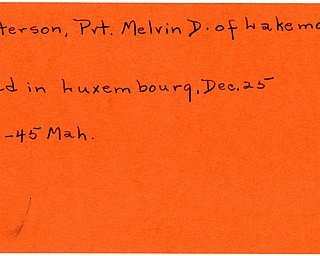 terson, Pvt. Melvin D. of Lakemo
d in Luxembourg, Dec. 25
-45 Mah.